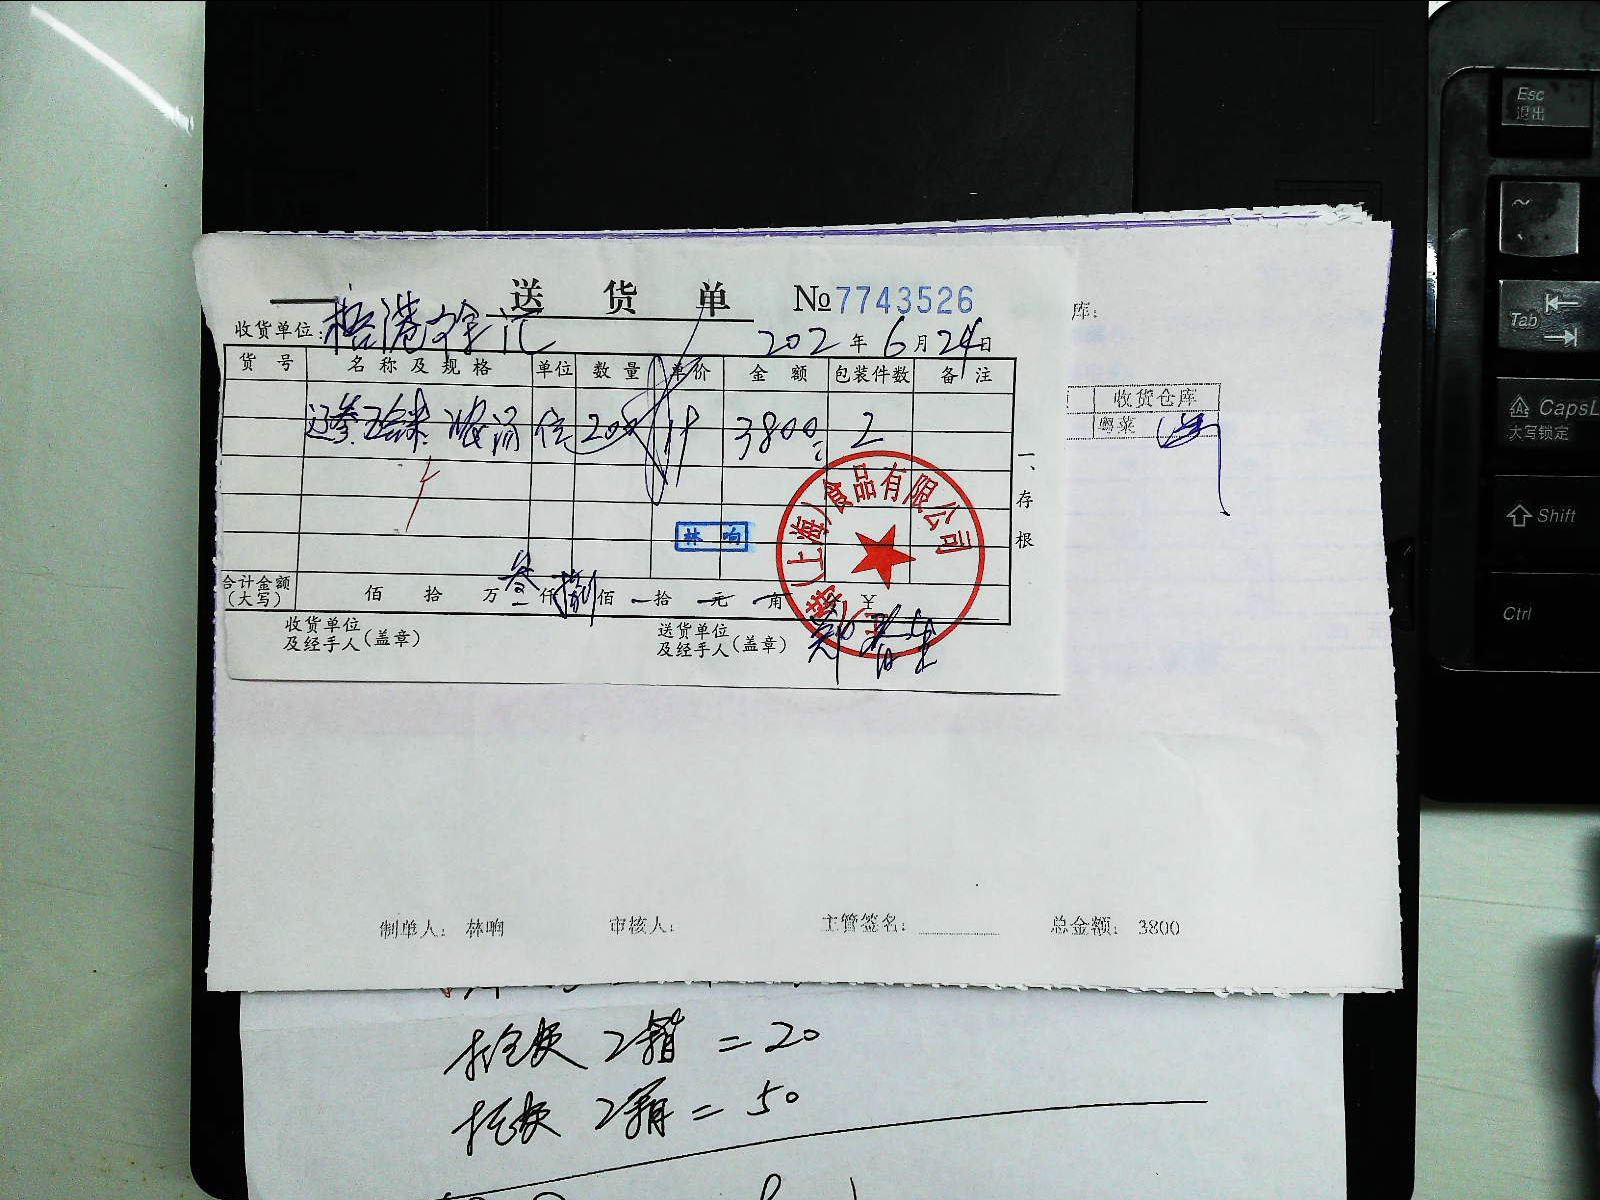 送 货 单 №7743526
收货单位: 202 年 6 月 24 日
库:
货 号 名 称 及 规 格 单位 数 量 单价 金 额 包装件数 备 注
收货仓库
位 200 19 3800 2
粤菜
一、存根
林 响
(上海)食品有限公司
合计金额(大写) 佰 拾 万 叁 仟 捌 佰 拾 元 角 分 ¥
收货单位及经手人(盖章)
送货单位及经手人(盖章)
制单人: 林响 审核人: 主管签名: 总金额: 3800
2箱 = 20
2箱 = 50
Esc
退出
~
Tab
CapsL
大写锁定
Shift
Ctrl